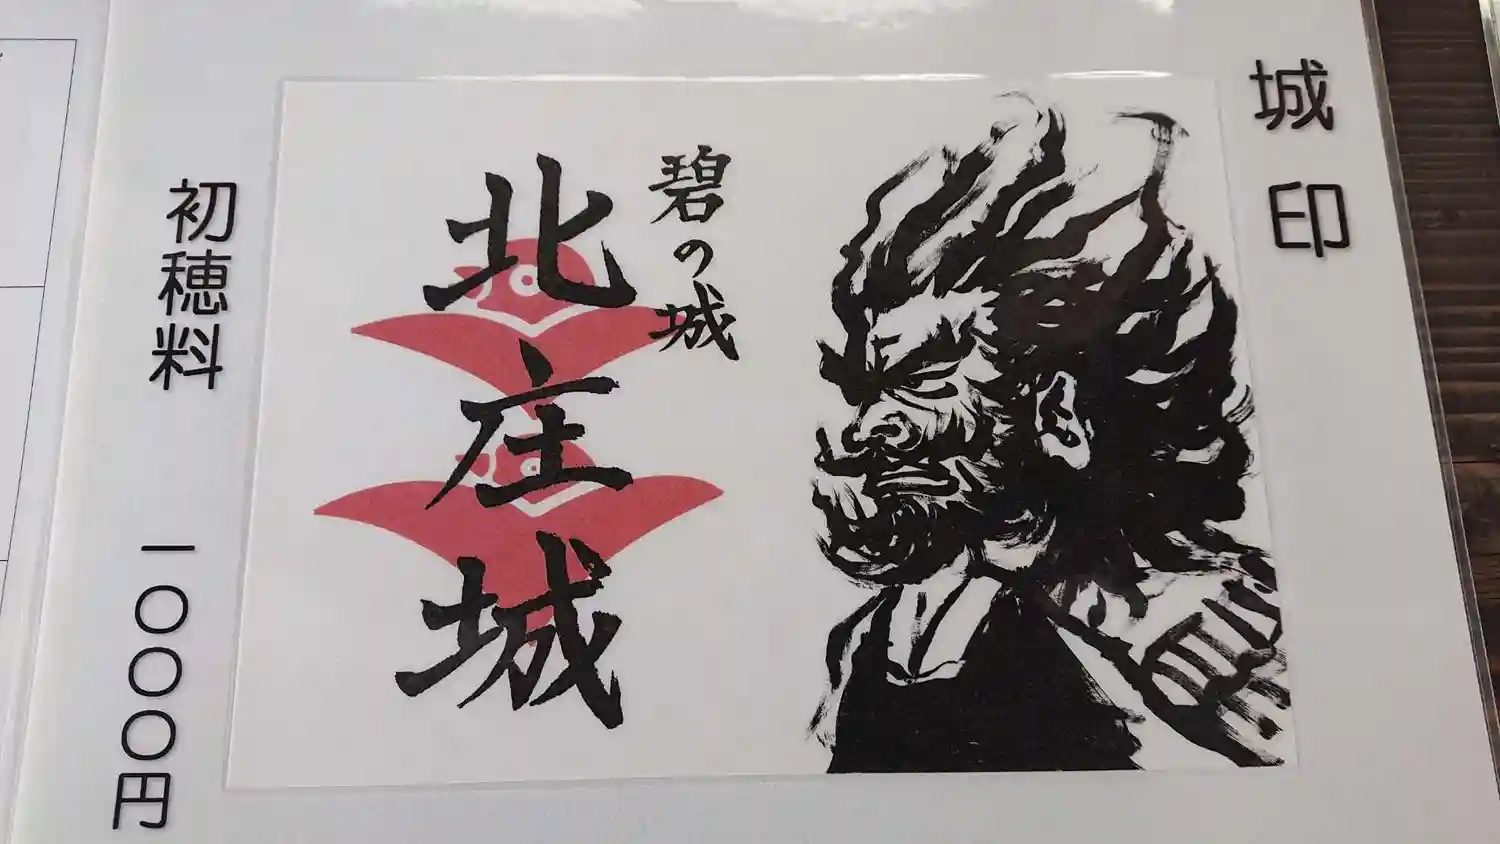 城印
碧の城
北庄城
初穂料 一〇〇〇円